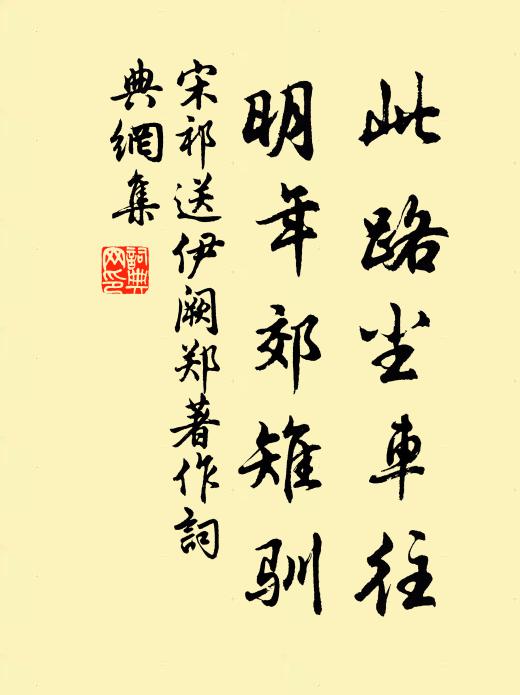 此路尘車往
明年郊雉馴
宋祁送伊阙郑著作詞
典網集
詞典
网印